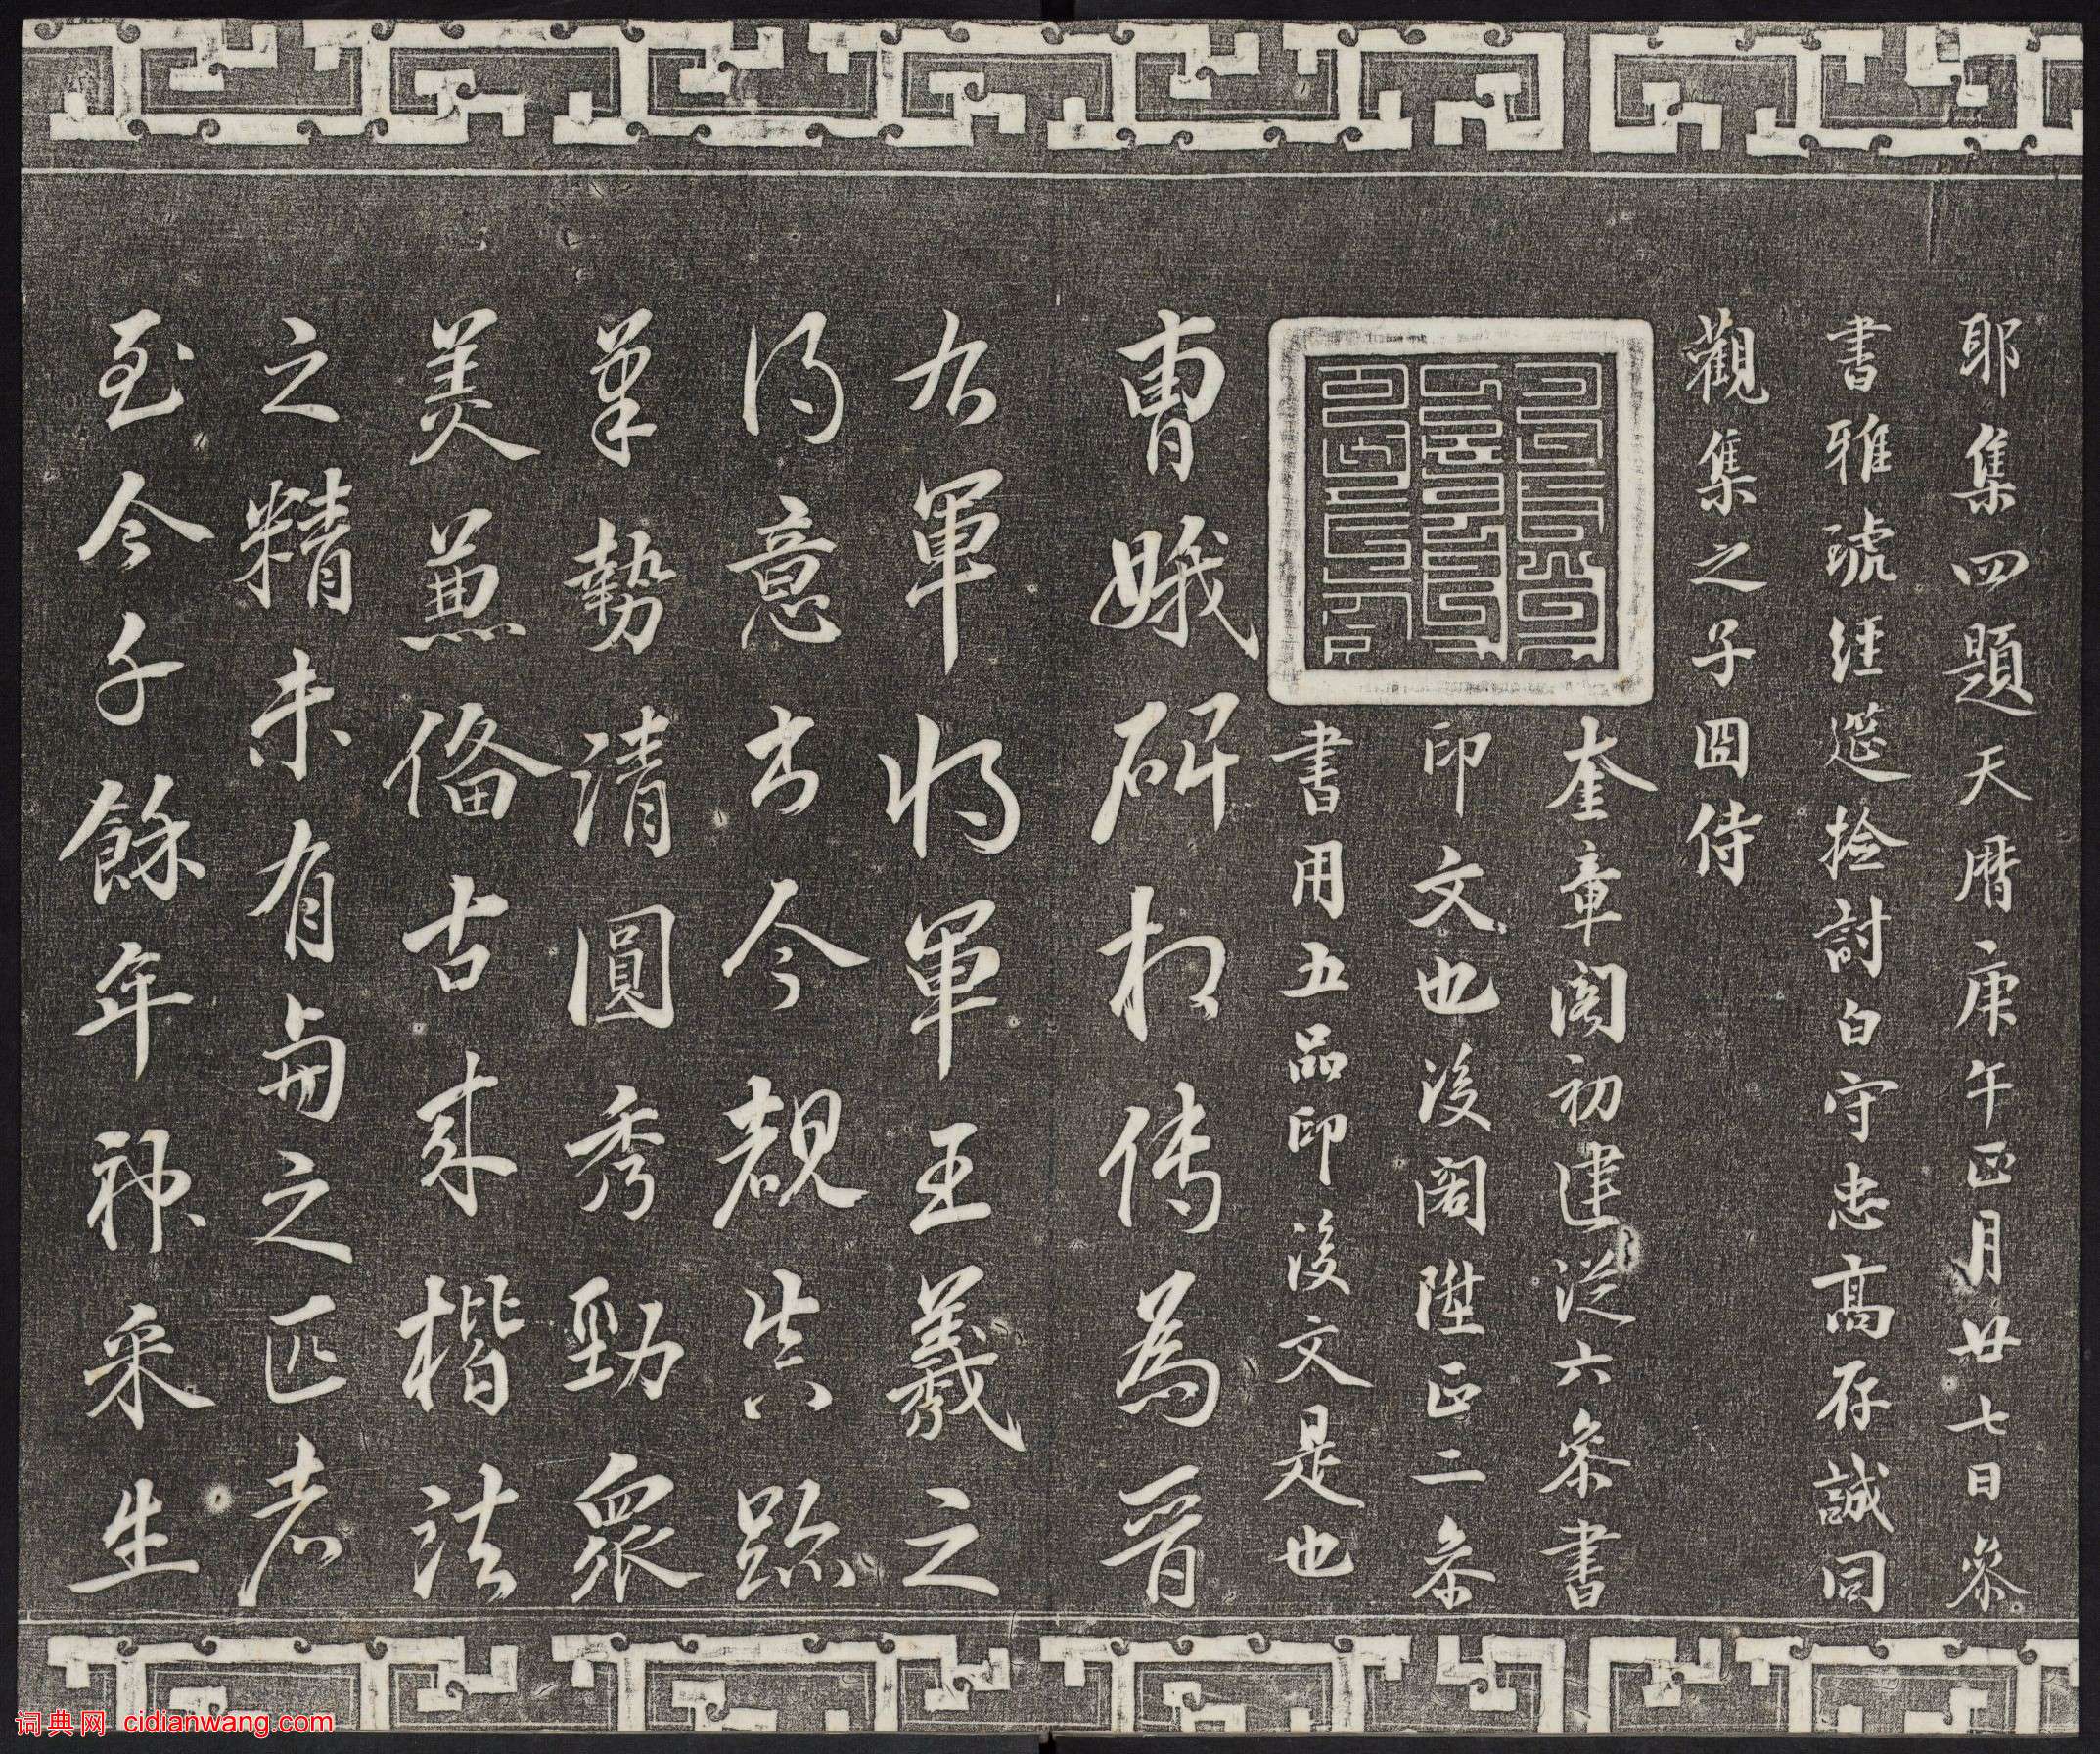 耶集四題天曆庚午正月廿七日參
書雅琥經筵檢討白守忠高存誠同
觀集之子囧侍
奎章閣初建從六品書
印文也後閣陞正二品
書用五品印後文是也
曹娥碑相傳為晉
右軍將軍王羲之
得意書今覩真跡
筆勢清圓秀勁眾
美兼備古來楷法
之精未有與之匹者
至今千餘年神采生
词典网 cidianwang.com